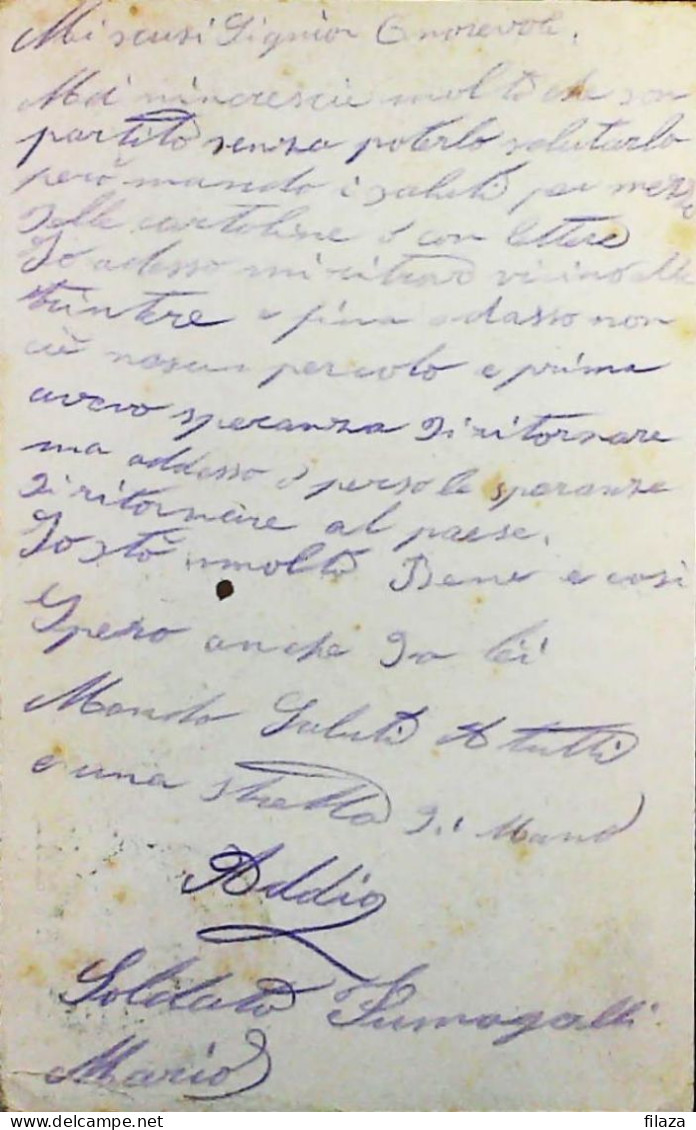 Mi scusi Signior Onorevole.
Mi rincrescie molto che son
partito senza poterlo salutarlo
però mando i saluti per mezzo
delle cartoline o con lettere
Io adesso mi ritrovo vicino alle
trintere e fina adasso non
ciè nesun percolo e prima
avevo speranza di ritornare
ma addesso ò perso le speranze
di ritornare al paese.
Io stò molto Bene e cosi
Spero anche da lei
Mando Saluti A tutti
e una stretta di Mano
Addio
Soldato Fumagalli
Mario
filaza